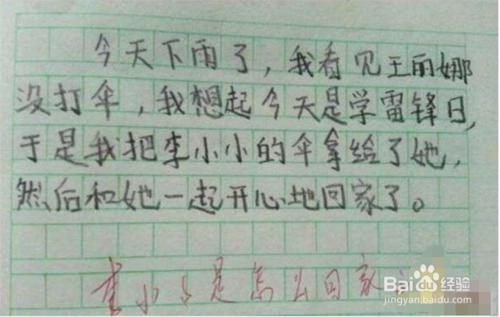 今天下雨了，我看见王丽娜
没打伞，我想起今天是学雷锋日，
于是我把李小小的伞拿给了她，
然后和她一起开心地回家了。
李小小是怎么回家
Baidu经验
jingyan.baidu.com